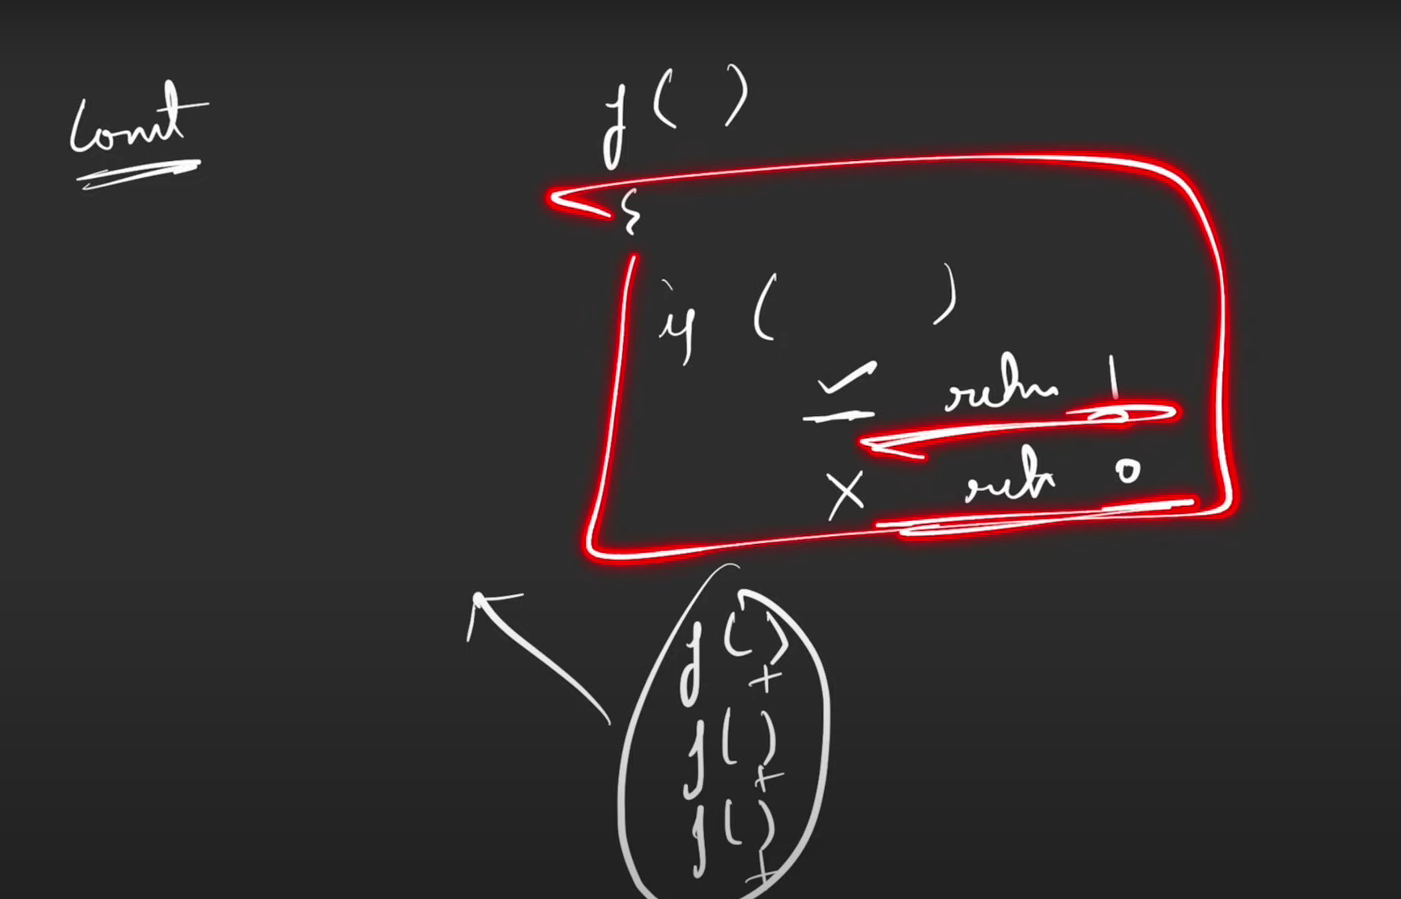 Count
f ( )
{
if ( )
✓ return 1
X return 0
f ( )
+
f ( )
+
f ( )
+